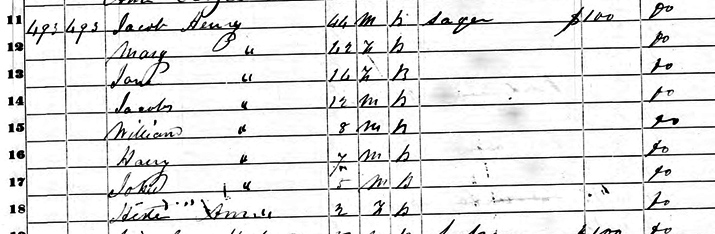 11 493 493 Jacob Henry 44 m b $100 do
12 Mary " 42 f b do
13 Jane " 14 f B do
14 Jacob " 12 m b do
15 William " 8 m b do
16 Harry " 7 m b do
17 John " 5 m b do
18 2 f b do
$100 do